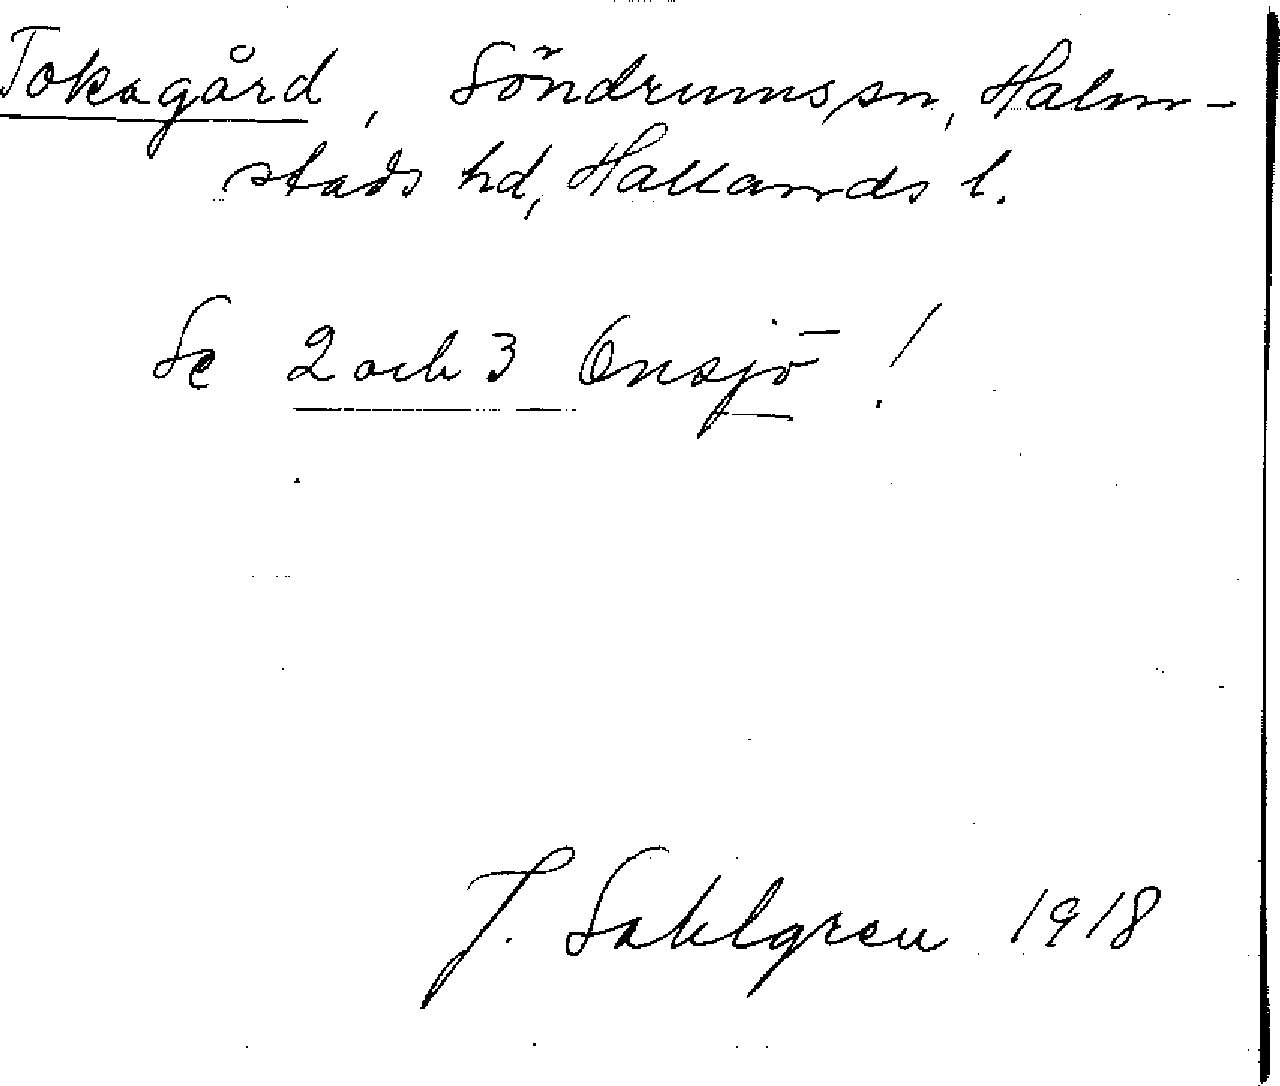 Tokagård, Söndrums sn, Halm-
stads hd, Hallands l.
Se 2 och 3 Onsjö !
J. Sahlgren 1918